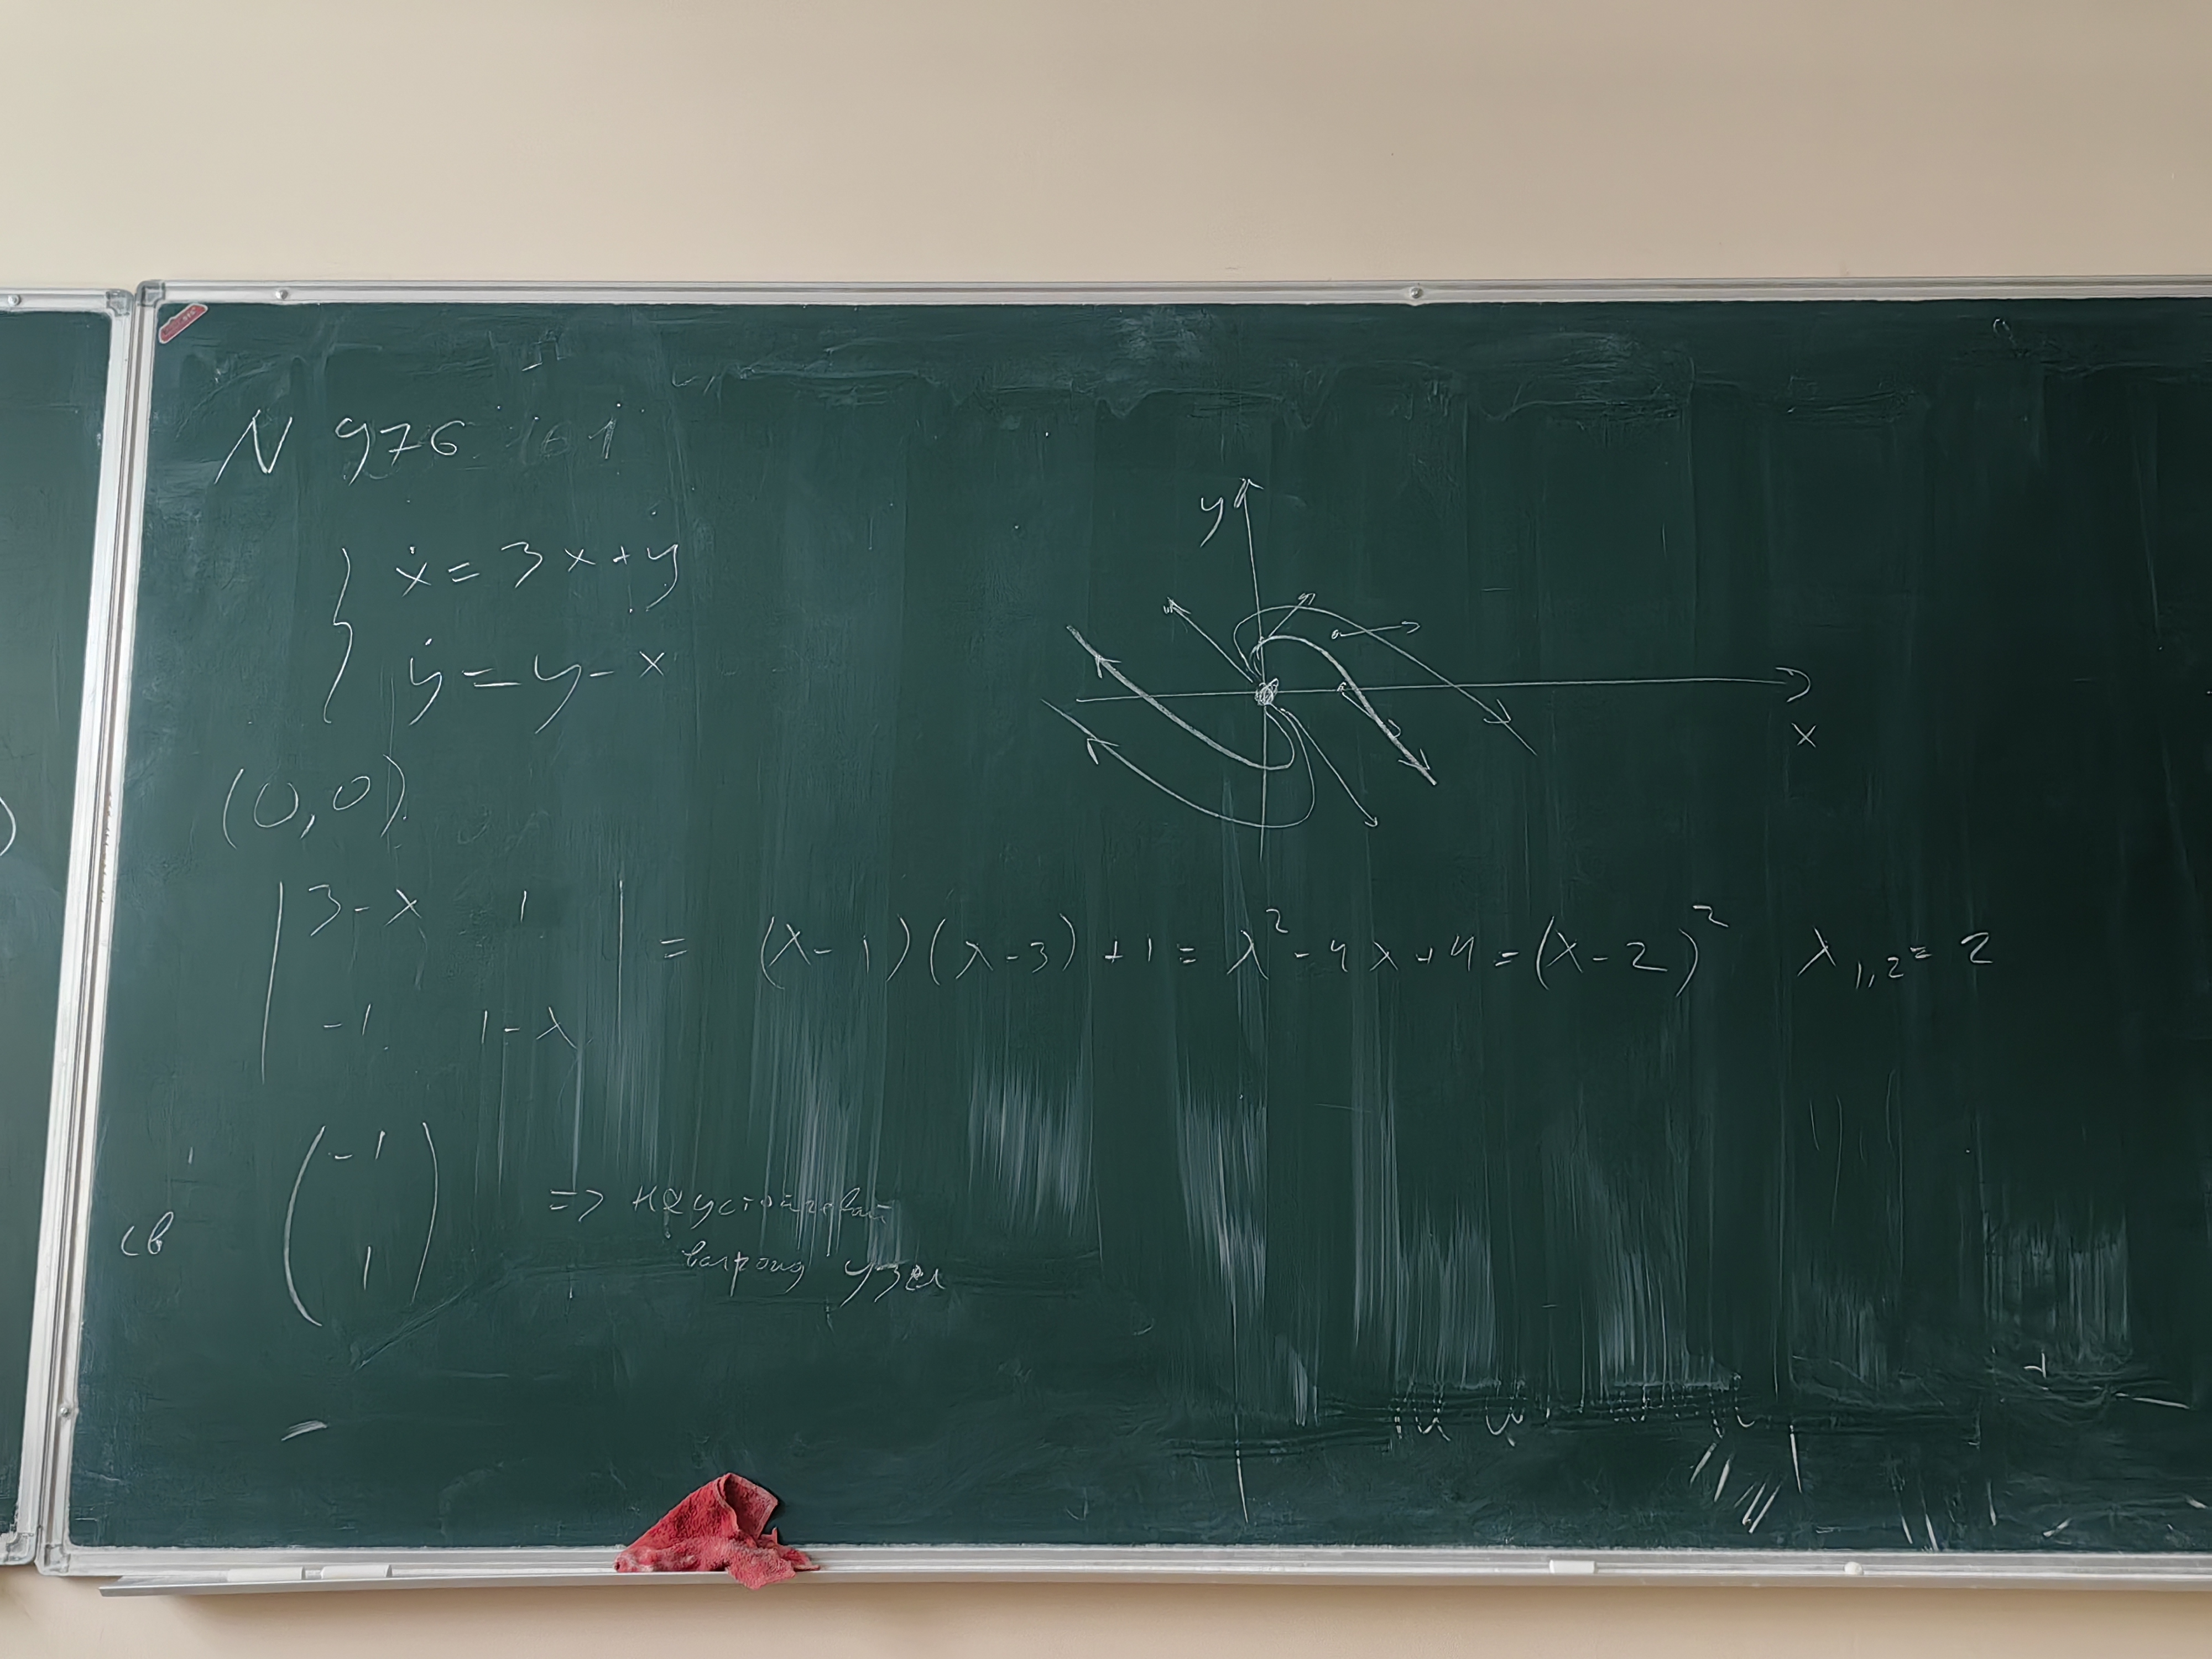 N 976
{ ẋ = 3x + y
ẏ = y - x
y
x
(0,0)
| 3-λ 1 |
| -1 1-λ | = (λ-1)(λ-3)+1 = λ² - 4λ + 4 = (λ-2)² λ₁,₂ = 2
св ( -1
1 )
=> неустойчивый
узел